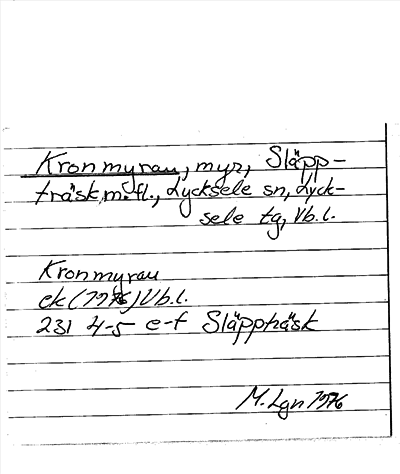 Kronmyrau, myr, Släpp-
träsk m.fl., Lycksele sn, Lyck-
sele tg, Vb.l.
Kronmyrau
ek (1976) Vb.l.
231 4-5 e-f Släppträsk
M. Lgn 1976